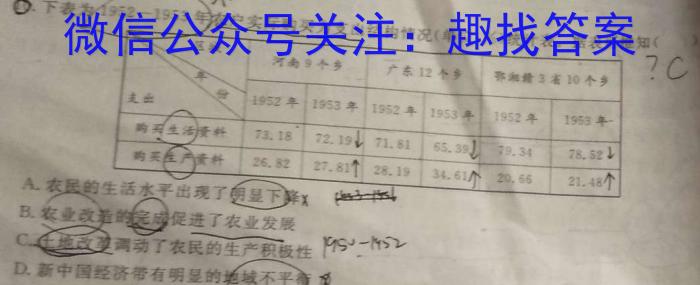 下表为1952—1953年农
微信公众号关注：趣找答案
知( )
河南9个乡 广东12个乡 鄂湘赣3省10个乡
?C
年份
支出
1952年 1953年 1952年 1953年 1952年 1953年
购买生活资料 73.18 72.19↓ 71.81 65.39↓ 79.34 78.52↓
购买生产资料 26.82 27.81↑ 28.19 34.61↑ 20.66 21.48↑
A. 农民的生活水平出现了明显下降x
B. 农业改造的完成促进了农业发展
C. 土地改革调动了农民的生产积极性 1950-1952
D. 新中国经济带有明显的地域不平衡